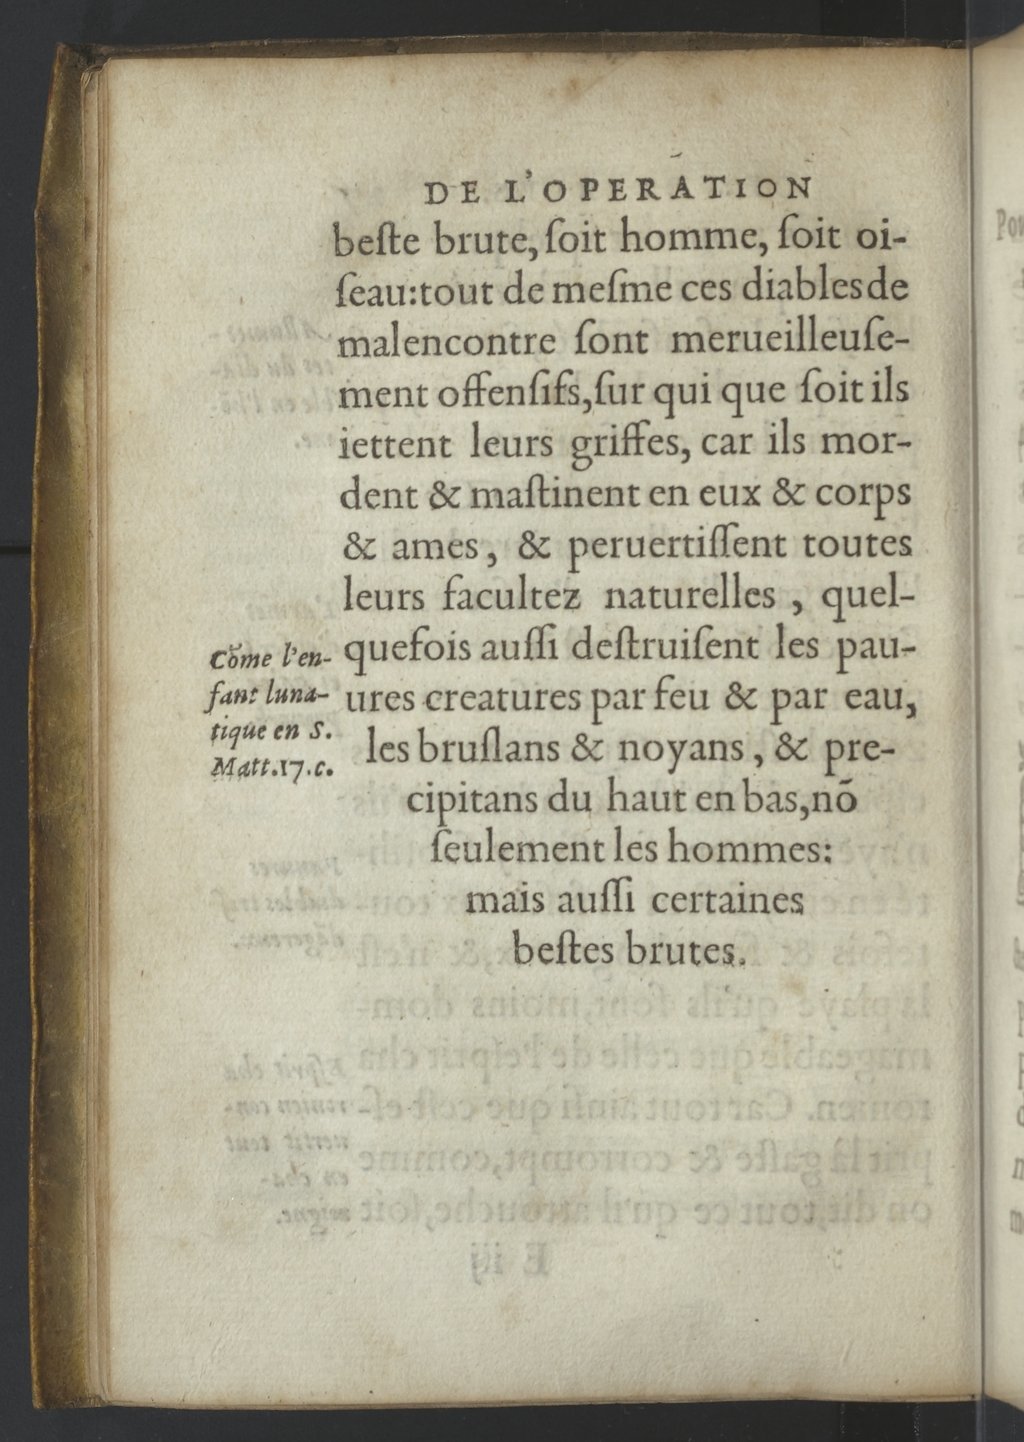 DE L'OPERATION
beſte brute, ſoit homme, ſoit oi-
ſeau: tout de meſme ces diables de
malencontre ſont merueilleuſe-
ment offenſifs, ſur qui que ſoit ils
iettent leurs griffes, car ils mor-
dent & maſtinent en eux & corps
& ames, & peruertiſſent toutes
leurs facultez naturelles, quel-
quefois auſſi deſtruiſent les pau-
ures creatures par feu & par eau,
les bruſlans & noyans, & pre-
cipitans du haut en bas, nō
ſeulement les hommes:
mais auſſi certaines
beſtes brutes.
Cōme l'en-
fant luna-
tique en S.
Matt. 17. c.